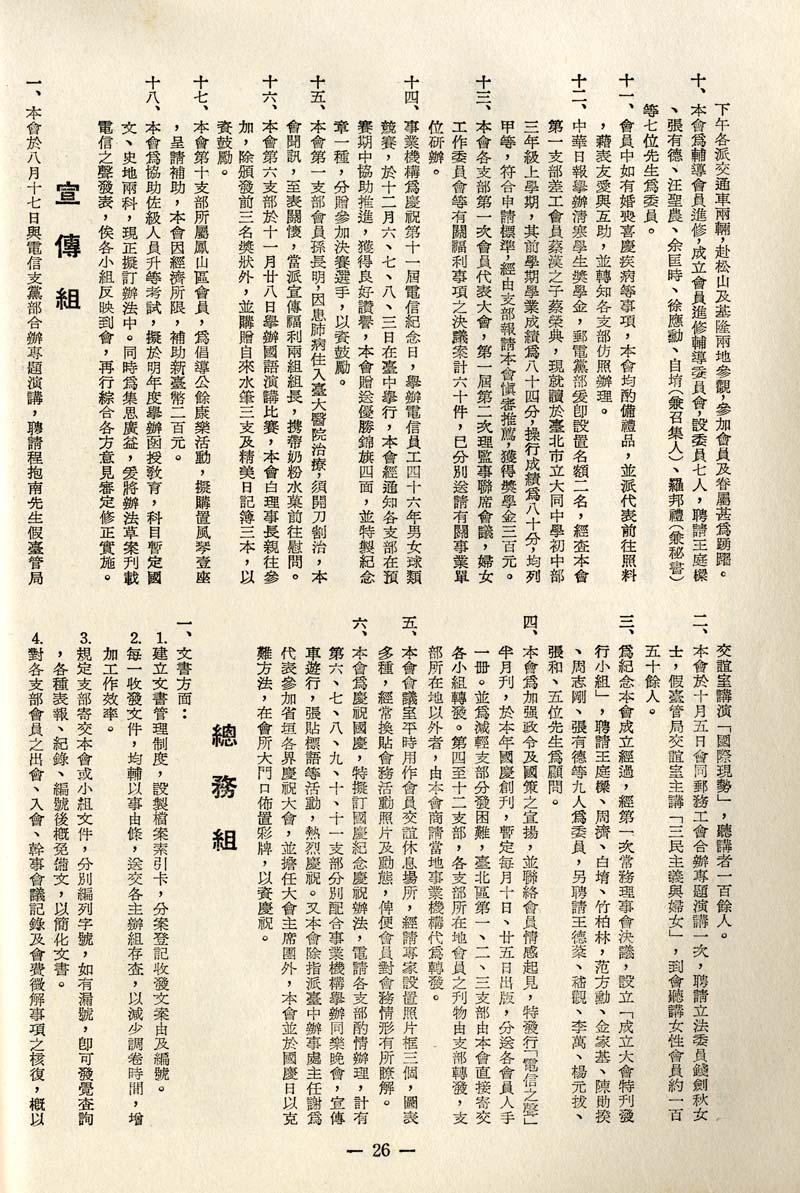 下午各派交通車兩輛，赴松山及基隆兩地參觀，參加會員及眷屬甚爲踴躍。
十、本會爲輔導會員進修，成立會員進修輔導委員會，設委員七人，聘請王庭樑
、張有德、汪聖農、余匡時、徐應勳、白堉（兼召集人）、羅邦禮（兼秘書）
等七位先生爲委員。
十一、會員中如有婚喪喜慶疾病等事項，本會均酌備禮品，並派代表前往照料
，藉表友愛與互助，並轉知各支部仿照辦理。
十二、中華日報舉辦清寒學生獎學金，郵電黨部爰卽設置名額二名，經查本會
第一支部差工會員蔡漢之子蔡榮典，現就讀於臺北市立大同中學初中部
三年級上學期，其前學期學業成績爲八十四分，操行成績爲八十分，均列
甲等，符合申請標準，經由支部報請本會慎審推薦，獲得獎學金三百元。
十三、本會各支部第一次會員代表大會，第一屆第二次理監事聯席會議，婦女
工作委員會等有關福利事項之決議案計六十件，已分別送請有關事業單
位研辦。
十四、事業機構爲慶祝第十一屆電信紀念日，舉辦電信員工四十六年男女球類
競賽，於十二月六、七、八、三日在臺中舉行，本會經通知各支部在預
賽期中協助推進，獲得良好讚譽，本會贈送優勝錦旗四面，並特製紀念
章一種，分贈參加決賽選手，以資鼓勵。
十五、本會第一支部會員孫長明，因患肺病住入臺大醫院治療，須開刀割治，本
會聞訊，至表關懷，當派宣傳福利兩組組長，携帶奶粉水菓前往慰問。
十六、本會第六支部於十一月廿八日舉辦國語演講比賽，本會白理事長親往參
加，除頒發前三名獎狀外，並購贈自來水筆三支及精美日記簿三本，以
資鼓勵。
十七、本會第十支部所屬鳳山區會員，爲倡導公餘康樂活動，擬購置風琴壹座
，呈請補助，本會因經濟所限，補助新臺幣二百元。
十八、本會爲協助佐級人員升等考試，擬於明年度舉辦函授教育，科目暫定國
文、史地兩科，現正擬訂辦法中。同時爲集思廣益，爰將辦法草案刊載
電信之聲發表，俟各小組反映到會，再行綜合各方意見審定修正實施。
宣傳組
一、本會於八月十七日與電信支黨部合辦專題演講，聘請程抱南先生假臺管局
交誼室講演「國際現勢」，聽講者一百餘人。
二、本會於十月五日會同郵務工會合辦專題演講一次，聘請立法委員錢劍秋女
士，假臺管局交誼室主講「三民主義與婦女」，到會聽講女性會員約一百
五十餘人。
三、爲紀念本會成立經過，經第一次常務理事會決議，設立「成立大會特刊發
行小組」，聘請王庭樑、周濟、白堉、竹柏林、范方勳、金家基、陳勛揆
、周志剛、張有德等九人爲委員，另聘請王德棻、嵇觀、李萬、楊元拔、
張和、五位先生爲顧問。
四、本會爲加强政令及國策之宣揚，並聯絡會員情感起見，特發行「電信之聲」
半月刊，於本年國慶創刊，暫定每月十日、廿五日出版，分送各會員人手
一冊。並爲減輕支部分發困難，臺北區第一、二、三支部由本會直接寄交
各小組轉發。第四至十二支部，各支部所在地會員之刊物由支部轉發，支
部所在地以外者，由本會商請當地事業機構代爲轉發。
五、本會會議室平時用作會員交誼休息場所，經請專家設置照片框三個，圖表
多種，經常換貼會務活動照片及動態，俾便會員對會務情形有所瞭解。
六、本會爲慶祝國慶，特擬訂國慶紀念慶祝辦法，電請各支部酌情辦理，計有
第六、七、八、九、十、十一支部分別配合事業機構舉辦同樂晚會，宣傳
車遊行，張貼標語等活動，熱烈慶祝。又本會除指派臺中辦事處主任謝爲
代表參加省垣各界慶祝大會，並擔任大會主席團外，本會並於國慶日以克
難方法，在會所大門口佈置彩牌，以資慶祝。
總務組
一、文書方面：
1. 建立文書管理制度，設製檔案索引卡，分案登記收發文案由及編號。
2. 每一收發文件，均輔以事由條，送交各主辦組存查，以減少調卷時間，增
加工作效率。
3. 規定支部寄交本會或小組文件，分別編列字號，如有漏號，卽可發覺查詢
，各種表報、紀錄、編號後槪免備文，以簡化文書。
4. 對各支部會員之出會、入會、幹事會議記錄及會費徵解事項之核復，槪以
— 26 —